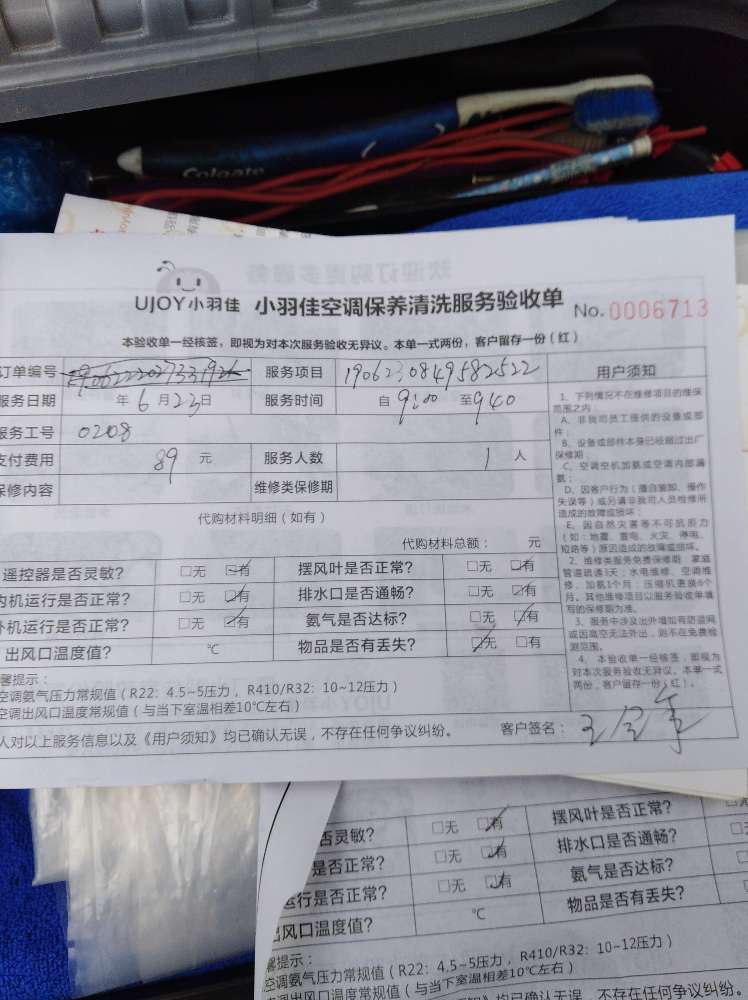 Colgate
UJOY小羽佳 小羽佳空调保养清洗服务验收单 No. 0006713
本验收单一经核签，即视为对本次服务验收无异议。本单一式两份，客户留存一份（红）
订单编号 服务项目 1906230849582522 用户须知
服务日期 年6月23日 服务时间 自9:00至940
服务工号 0208
支付费用 89元 服务人数 1人
保修内容 维修类保修期
代购材料明细（如有）
代购材料总额： 元
1、下列情况不在维修项目的维保
范围之内：
A、非我司员工提供的设备或部
件；
B、设备或部件本身已经超过出厂
保修期；
C、空调空机加氨或空调内部漏
氨；
D、因客户行为（擅自装卸、操作
失误等）或另请非我司人员检修所
造成的故障或损坏；
E、因自然灾害等不可抗拒力
（如：地震、雷电、火灾、停电、
短路等）原因造成的故障或损坏。
2、维修类服务免费保修期：家庭
管道疏通1天；水电维修、空调维
修、加氨1个月；压缩机更换6个
月。其他维修项目以服务验收单填
写的保修期为准。
3、服务中涉及出外墙如有防盗网
或因高空无法外出，则不在免费检
测范围。
4、本验收单一经核签，即视为
对本次服务验收无异议。本单一式
两份，客户留存一份（红）。
遥控器是否灵敏? □无 □有 摆风叶是否正常? □无 □有
内机运行是否正常? □无 □有 排水口是否通畅? □无 □有
外机运行是否正常? □无 □有 氨气是否达标? □无 □有
出风口温度值? ℃ 物品是否有丢失? □无 □有
馨提示：
空调氨气压力常规值（R22：4.5~5压力，R410/R32：10~12压力）
空调出风口温度常规值（与当下室温相差10℃左右）
人对以上服务信息以及《用户须知》均已确认无误，不存在任何争议纠纷。 客户签名：
否灵敏? □无 □有 摆风叶是否正常?
是否正常? □无 □有 排水口是否通畅?
运行是否正常? □无 □有 氨气是否达标?
出风口温度值? ℃ 物品是否有丢失?
馨提示：
空调氨气压力常规值（R22：4.5~5压力，R410/R32：10~12压力）
空调出风口温度常规值（与当下室温相差10℃左右）
》均已确认无误，不存在任何争议纠纷。